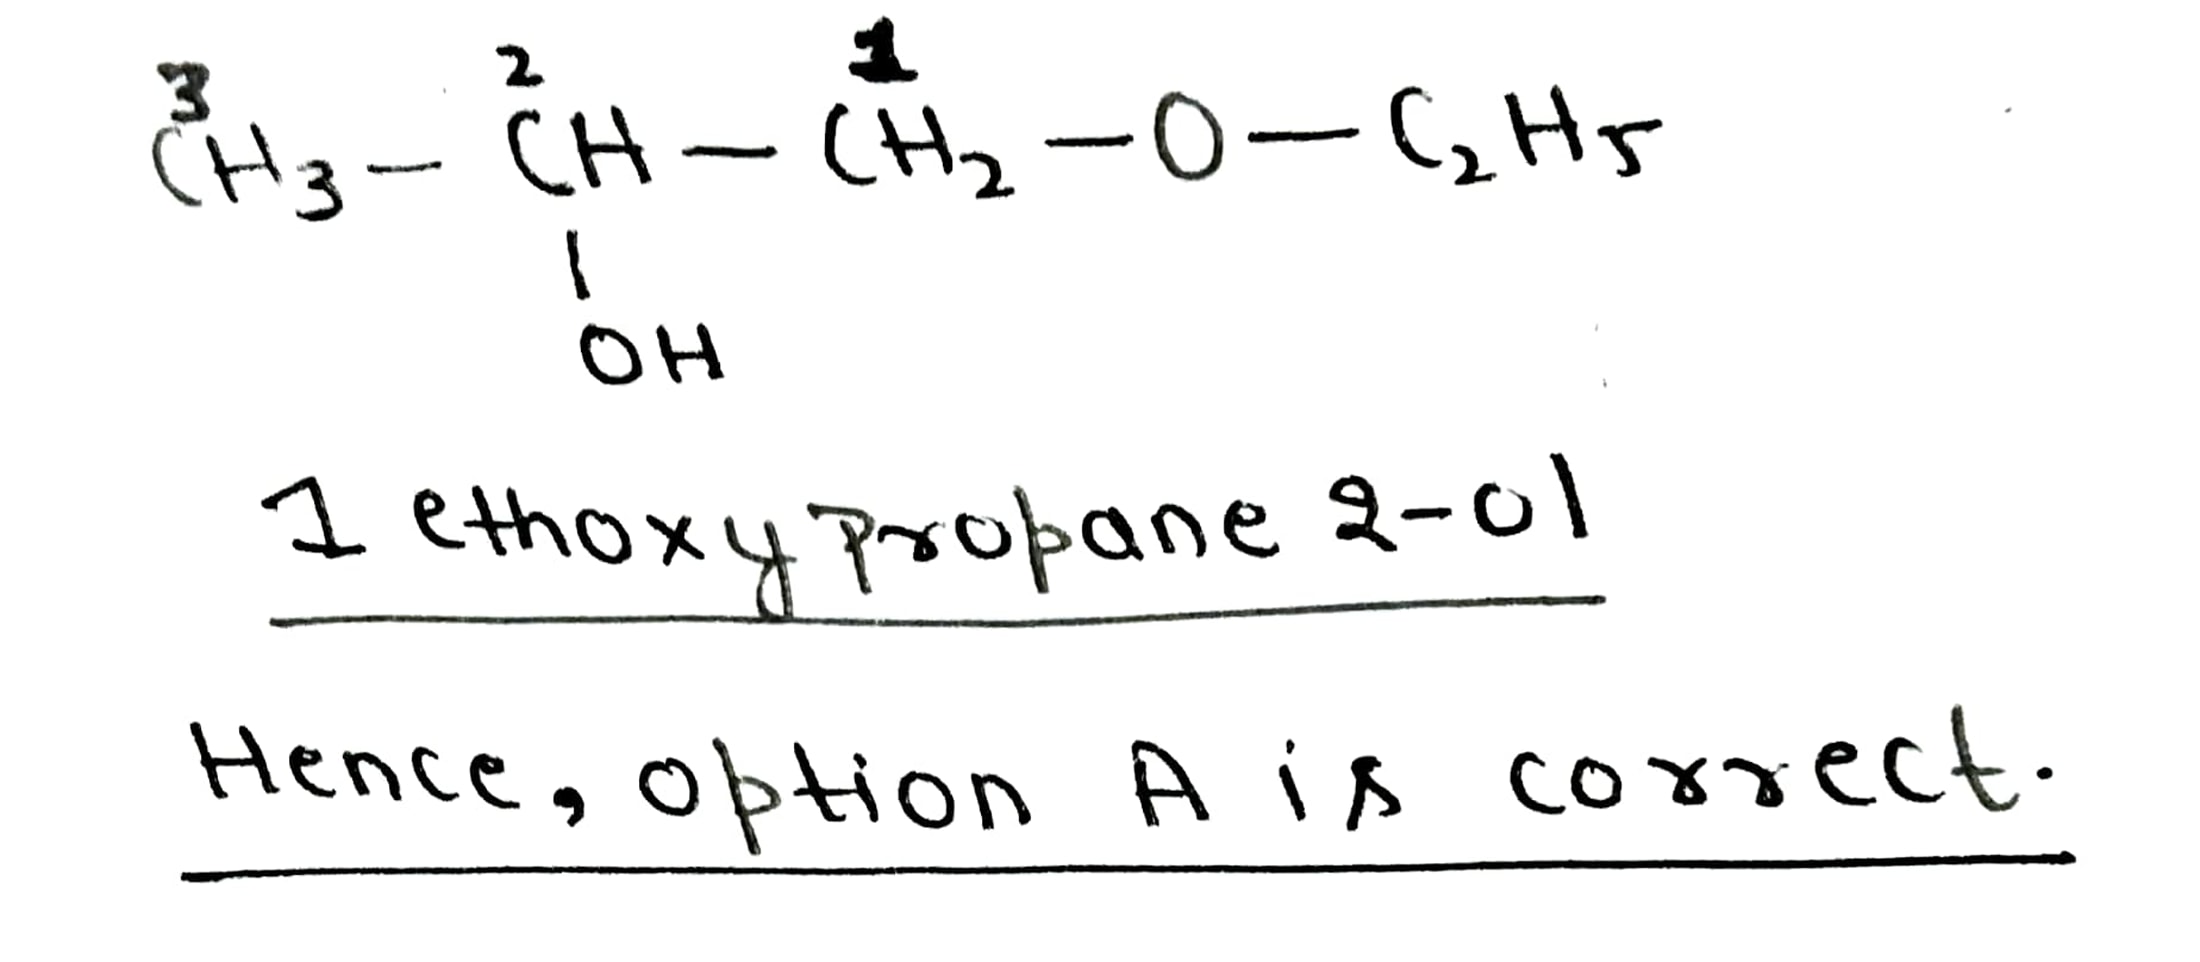 3 2 1
CH3 - CH - CH2 - O - C2H5
|
OH
1 ethoxy Propane 2-ol
Hence, option A is correct.